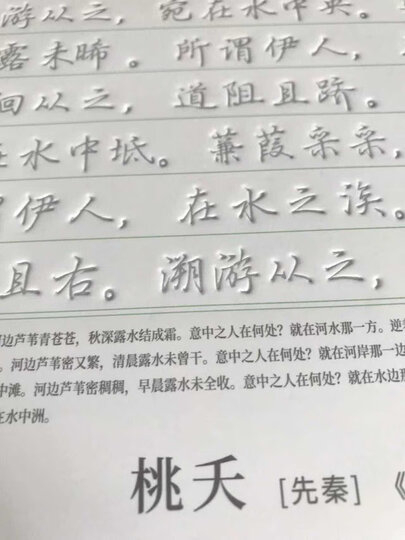 游从之，宛在水中央。
露未晞。所谓伊人，
洄从之，道阻且跻。
在水中坻。蒹葭采采，
谓伊人，在水之涘。
且右。溯游从之，
河边芦苇青苍苍，秋深露水结成霜。意中之人在何处？就在河水那一方。逆
。河边芦苇密又繁，清晨露水未曾干。意中之人在何处？就在河岸那一边
中滩。河边芦苇密稠稠，早晨露水未全收。意中之人在何处？就在水边那
在水中洲。
桃夭 [先秦] 《